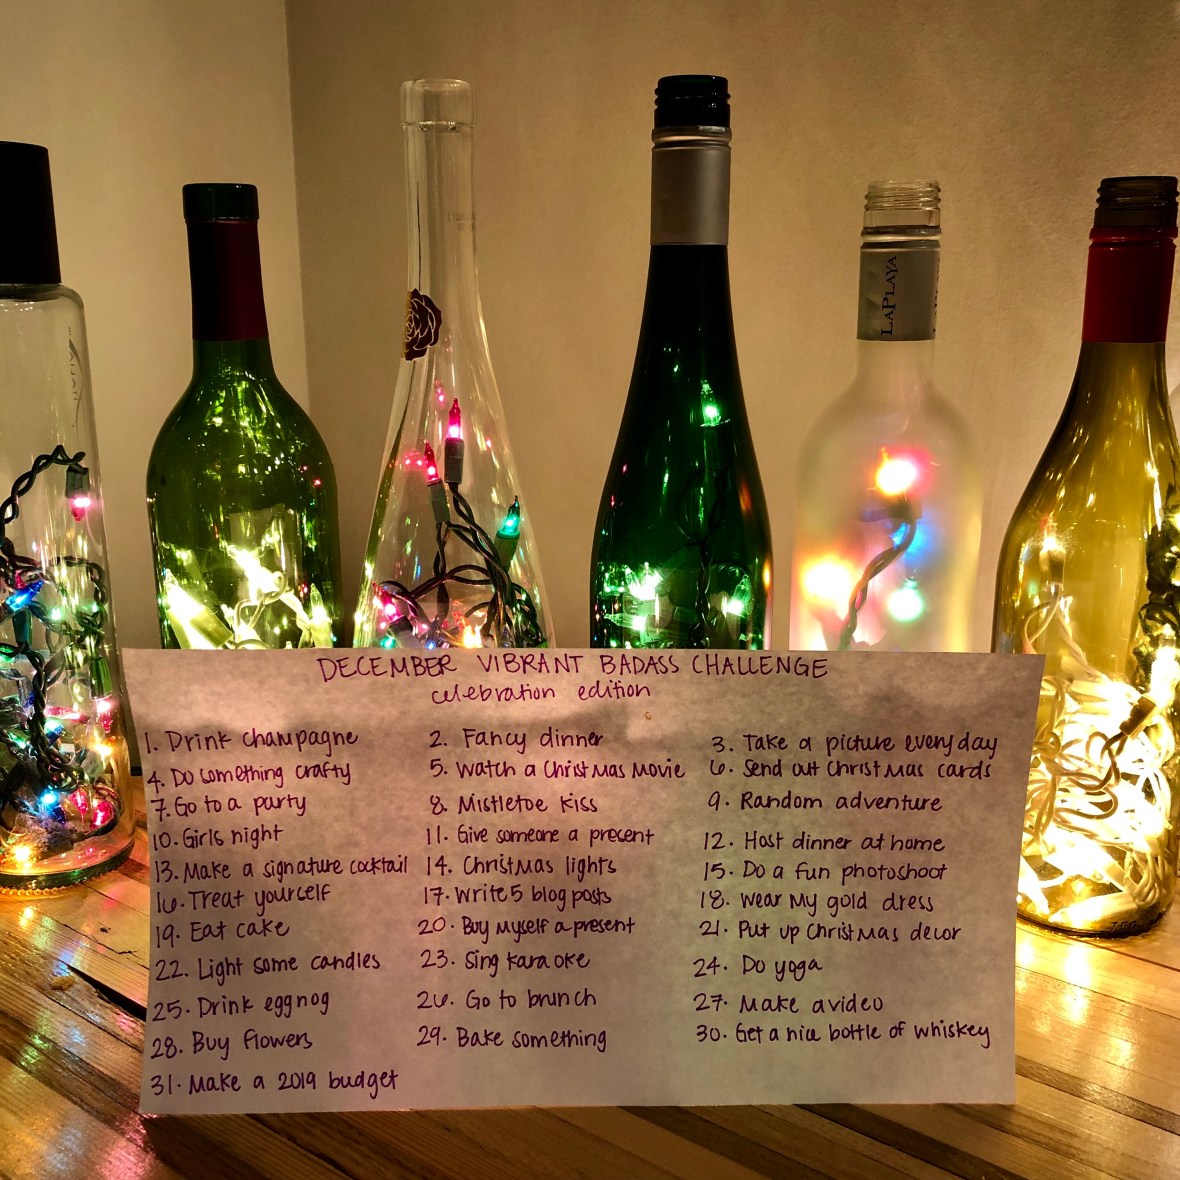 LAPLAYA
DECEMBER VIBRANT BADASS CHALLENGE
celebration edition
1. Drink champagne
2. Fancy dinner
3. Take a picture everyday
4. Do something crafty
5. Watch a Christmas Movie
6. Send out Christmas cards
7. Go to a party
8. Mistletoe kiss
9. Random adventure
10. Girls night
11. Give someone a present
12. Host dinner at home
13. Make a signature cocktail
14. Christmas lights
15. Do a fun photoshoot
16. Treat yourself
17. Write 5 blog posts
18. Wear my gold dress
19. Eat cake
20. Buy myself a present
21. Put up Christmas decor
22. Light some candles
23. Sing karaoke
24. Do yoga
25. Drink eggnog
26. Go to brunch
27. Make a video
28. Buy flowers
29. Bake something
30. Get a nice bottle of whiskey
31. Make a 2019 budget